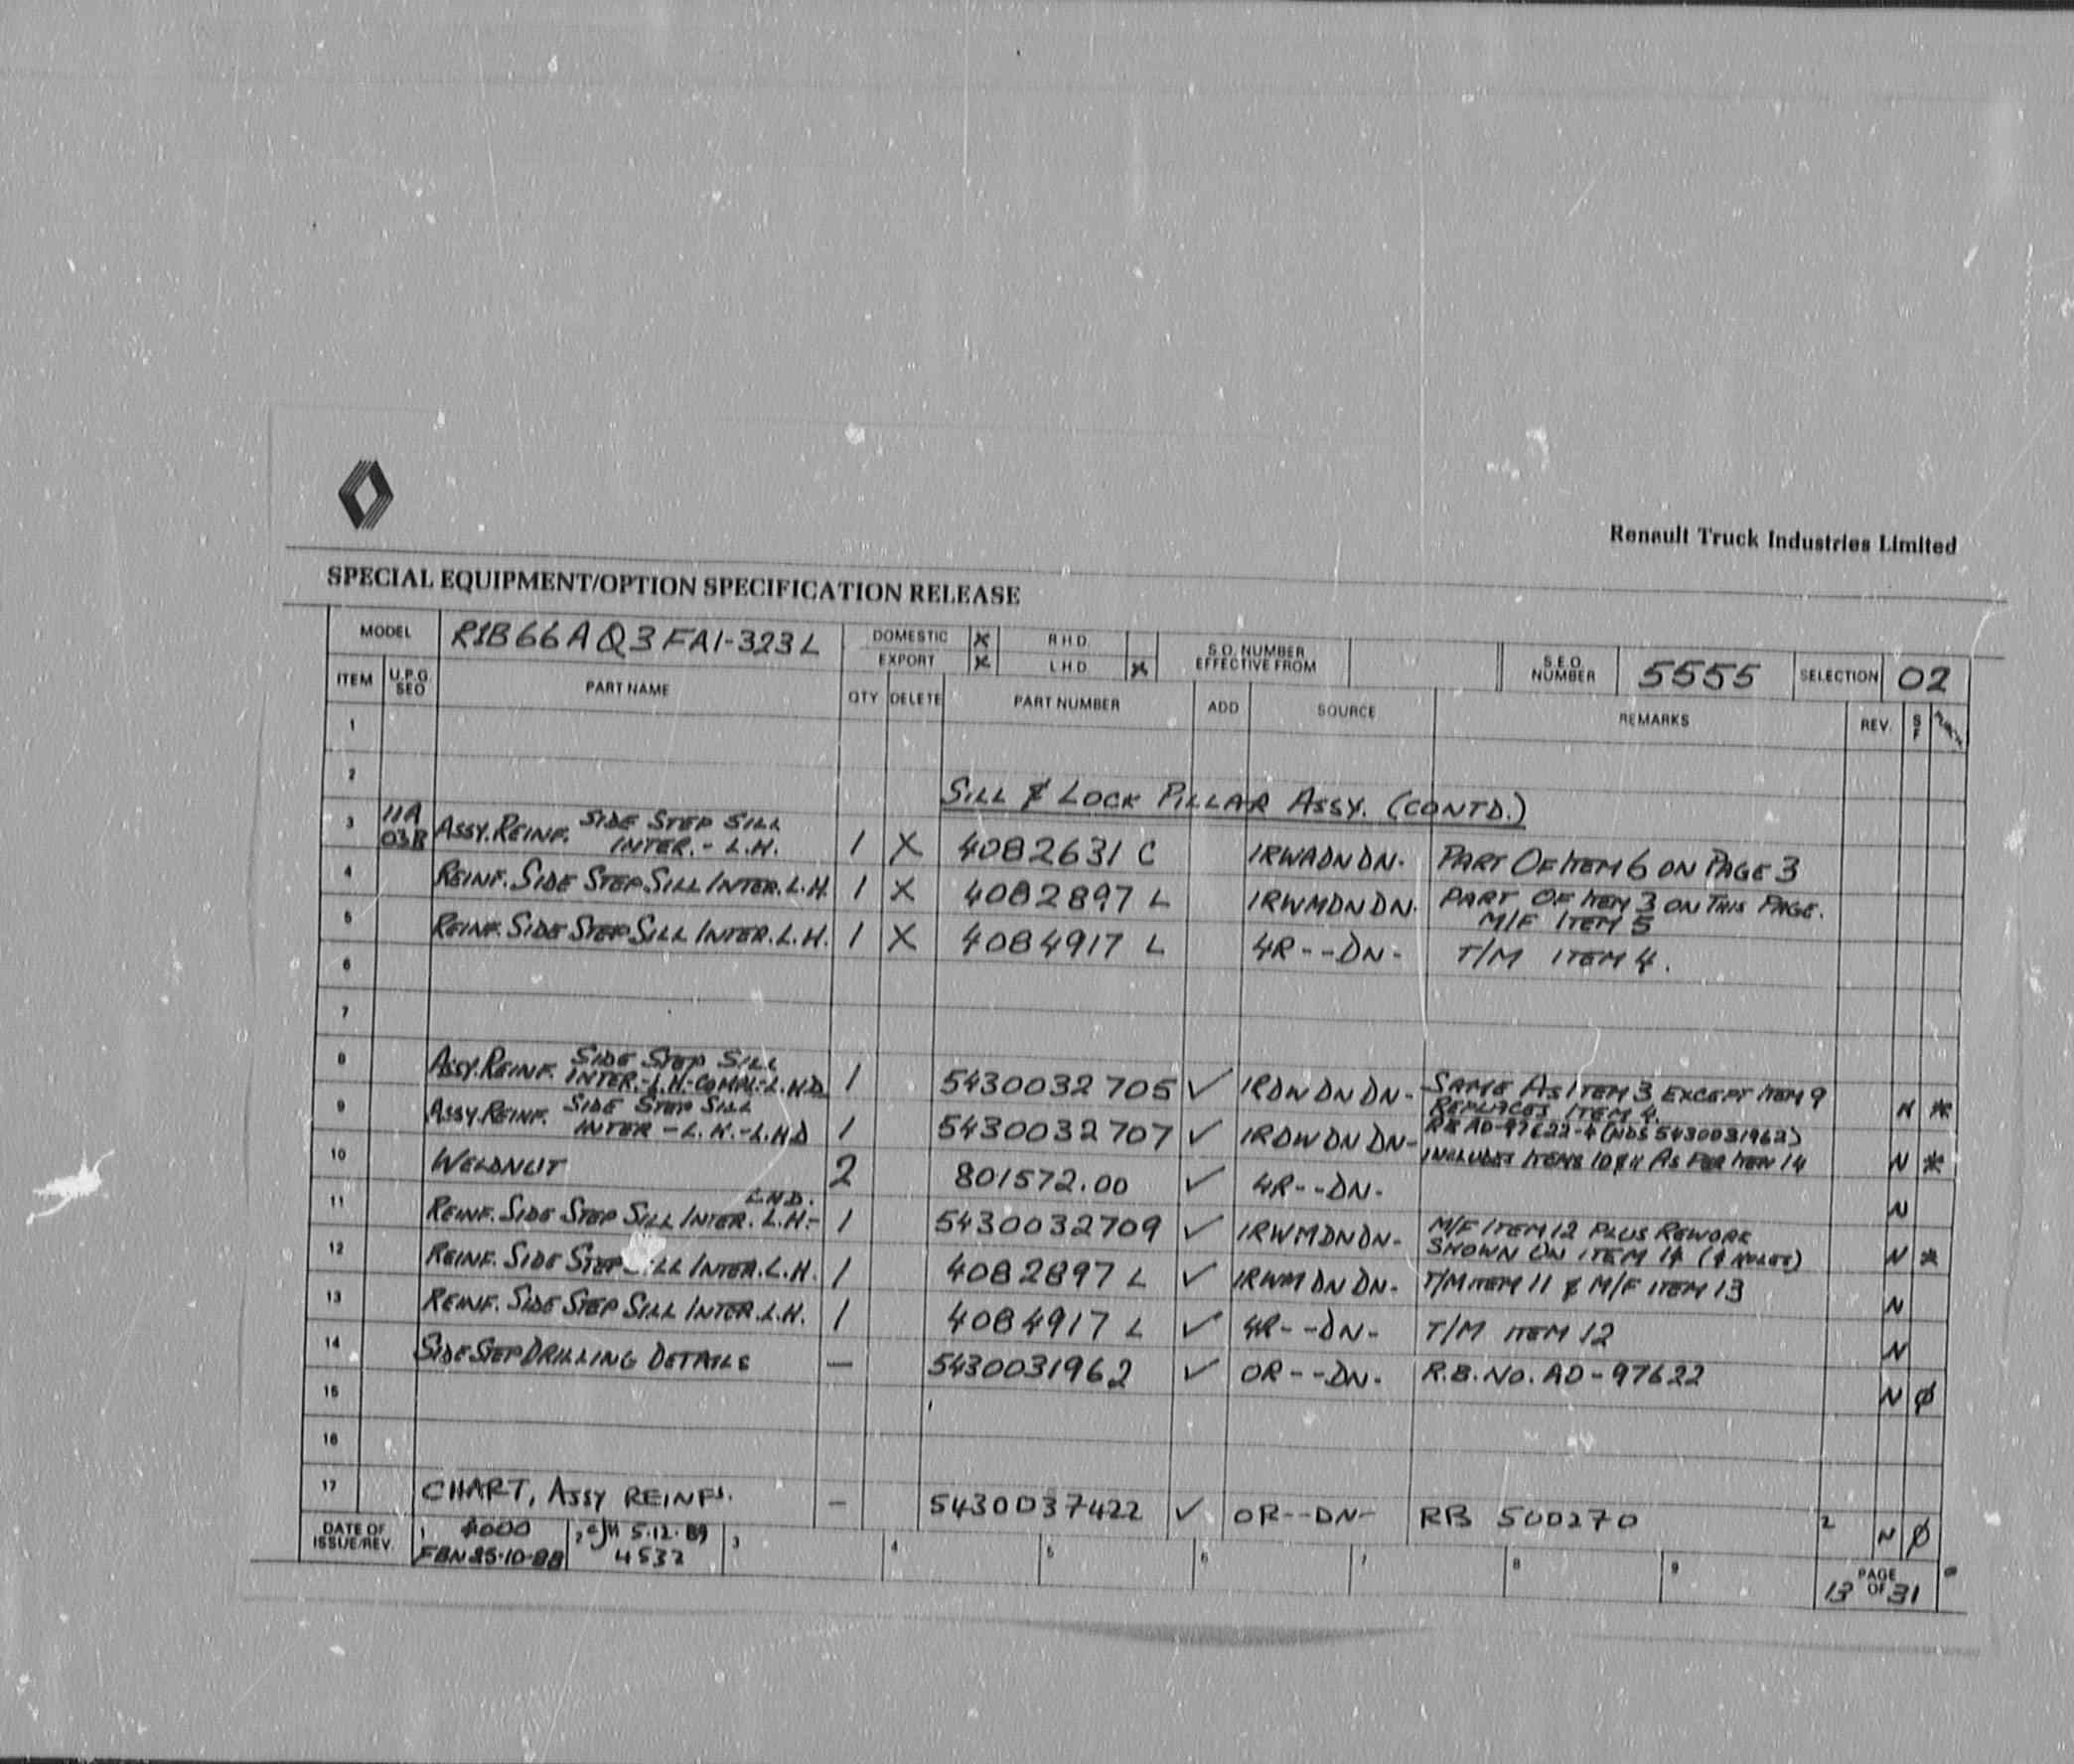 Renault Truck Industries Limited
SPECIAL EQUIPMENT/OPTION SPECIFICATION RELEASE
MODEL R1B66AQ3FA1-323L DOMESTIC X R.H.D. S.O. NUMBER EFFECTIVE FROM S.E.O. NUMBER 5555 SELECTION 02
EXPORT X L.H.D. X
ITEM U.P.G. SEQ PART NAME QTY DELETE PART NUMBER ADD SOURCE REMARKS REV. S F
1
2 SILL & LOCK PILLAR ASSY. (CONTD.)
3 11A 03B ASSY. REINF. SIDE STEP SILL INTER. - L.H. 1 X 4082631 C 1RWADNDN- PART OF ITEM 6 ON PAGE 3
4 REINF. SIDE STEP SILL INTER. L.H. 1 X 4082897 L 1RWMDNDN- PART OF ITEM 3 ON THIS PAGE.
M/F ITEM 5
5 REINF. SIDE STEP SILL INTER. L.H. 1 X 4084917 L 4R--DN- T/M ITEM 4.
6
7
8 ASSY. REINF. SIDE STEP SILL INTER.-L.H.-COMPL.-L.H.D 1 5430032705 ✓ 1RDWDNDN- SAME AS ITEM 3 EXCEPT ITEM 9
REPLACES ITEM 4. N *
9 ASSY. REINF. SIDE STEP SILL INTER - L.H.-L.H.D 1 5430032707 ✓ 1RDWDNDN- RB AD-97622-4 (NDS 5430031962)
INCLUDES ITEMS 10 & 11 AS PER ITEM 14 N *
10 WELDNUT 2 801572.00 ✓ 4R--DN- N
11 REINF. SIDE STEP SILL INTER. L.H.- L.H.D. 1 5430032709 ✓ 1RWMDNDN- M/F ITEM 12 PLUS REWORK
SHOWN ON ITEM 14 (4 HOLES) N *
12 REINF. SIDE STEP SILL INTER. L.H. 1 4082897 L ✓ 1RWMDNDN- T/M ITEM 11 & M/F ITEM 13 N
13 REINF. SIDE STEP SILL INTER. L.H. 1 4084917 L ✓ 4R--DN- T/M ITEM 12 N
14 SIDE STEP DRILLING DETAILS — 5430031962 ✓ OR--DN- R.B. NO. AD-97622 N Ø
15
16
17 CHART, ASSY REINFS. - 5430037422 ✓ OR--DN- RB 500270 2 N Ø
DATE OF ISSUE/REV. 1 4000 2 5.12.89 3 4 5 6 7 8 9 PAGE
FBN 25-10-88 4532 13 OF 31